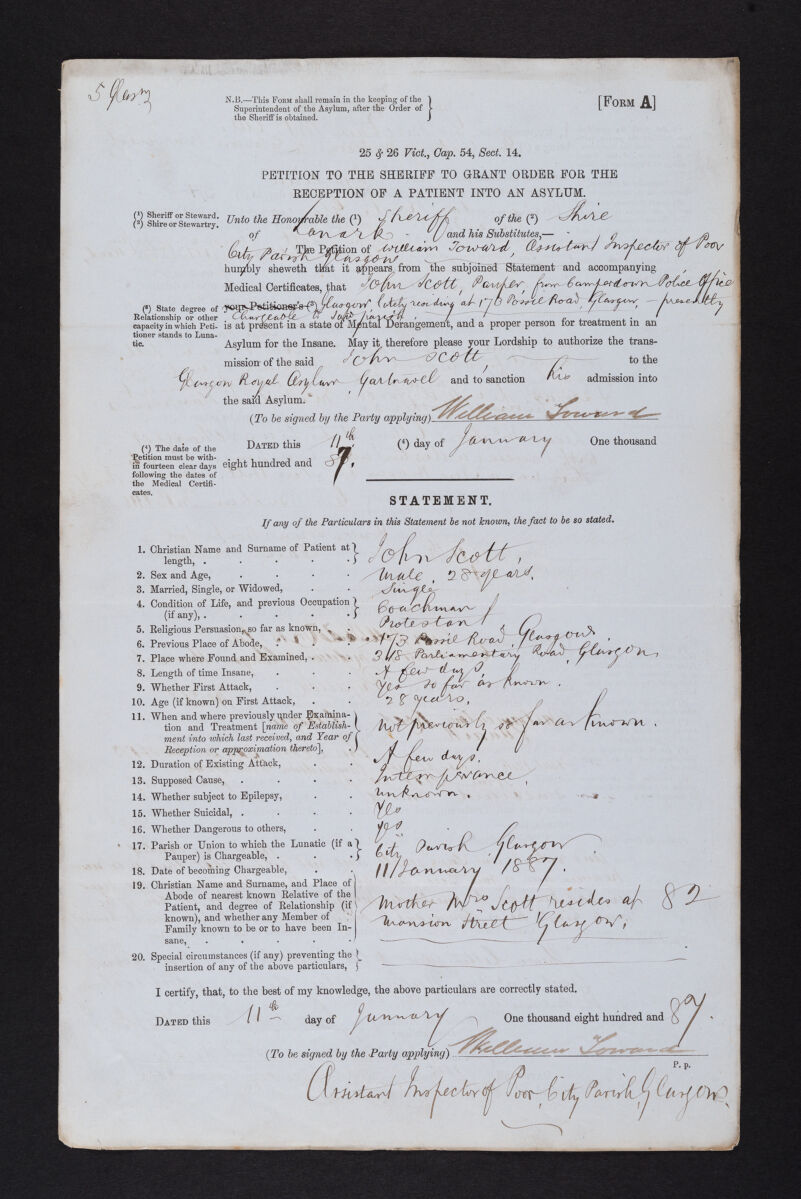 N.B.—This Form shall remain in the keeping of the
Superintendent of the Asylum, after the Order of
the Sheriff is obtained.
[Form A]
25 & 26 Vict., Cap. 54, Sect. 14.
PETITION TO THE SHERIFF TO GRANT ORDER FOR THE
RECEPTION OF A PATIENT INTO AN ASYLUM.
(1) Sheriff or Steward.
(2) Shire or Stewartry.
Unto the Honourable the (1) Sheriff of the (2) Shire
of Lanark and his Substitutes,—
The Petition of William Toward, Assistant Inspector of Poor
City Parish Glasgow
humbly sheweth that it appears from the subjoined Statement and accompanying
Medical Certificates, that John Scott, Pauper, from Camperdown Police Office
(3) State degree of
Relationship or other
capacity in which Peti-
tioner stands to Luna-
tic.
your Petitioner's (3) Glasgow, lately residing at 173 Possil Road, Glasgow, – presently
Chargeable to said parish
is at present in a state of Mental Derangement, and a proper person for treatment in an
Asylum for the Insane. May it therefore please your Lordship to authorize the trans-
mission of the said John Scott, to the
Glasgow Royal Asylum Gartnavel and to sanction his admission into
the said Asylum.
(To be signed by the Party applying) William Toward
(4) The date of the
Petition must be with-
in fourteen clear days
following the dates of
the Medical Certifi-
cates.
Dated this 11th (4) day of January One thousand
eight hundred and 87.
STATEMENT.
If any of the Particulars in this Statement be not known, the fact to be so stated.
1. Christian Name and Surname of Patient at
length, . . . . . John Scott,
2. Sex and Age, . . . . Male, 28 years.
3. Married, Single, or Widowed, . . Single
4. Condition of Life, and previous Occupation
(if any), . . . . . Coachman
5. Religious Persuasion, so far as known, . Protestant
6. Previous Place of Abode, . . . 173 Possil Road Glasgow.
7. Place where Found and Examined, . . 318 Parliamentary Road, Glasgow
8. Length of time Insane, . . . A few days,
9. Whether First Attack, . . . Yes so far as known.
10. Age (if known) on First Attack, . . 28 years.
11. When and where previously under Examina-
tion and Treatment [name of Establish-
ment into which last received, and Year of
Reception or approximation thereto], . Not previously so far as known.
12. Duration of Existing Attack, . . A few days.
13. Supposed Cause, . . . . Intemperance,
14. Whether subject to Epilepsy, . . unknown.
15. Whether Suicidal, . . . . Yes
16. Whether Dangerous to others, . . Yes
17. Parish or Union to which the Lunatic (if a
Pauper) is Chargeable, . . . City Parish Glasgow
18. Date of becoming Chargeable, . . 11 January 1887.
19. Christian Name and Surname, and Place of
Abode of nearest known Relative of the
Patient, and degree of Relationship (if
known), and whether any Member of
Family known to be or to have been In-
sane, . . . . .
Mother Mrs Scott resides at 82
Mansion Street Glasgow.
20. Special circumstances (if any) preventing the
insertion of any of the above particulars,
I certify, that, to the best of my knowledge, the above particulars are correctly stated.
Dated this 11th day of January One thousand eight hundred and 87.
(To be signed by the Party applying) William Toward
P. p.
Assistant Inspector of Poor, City Parish, Glasgow.